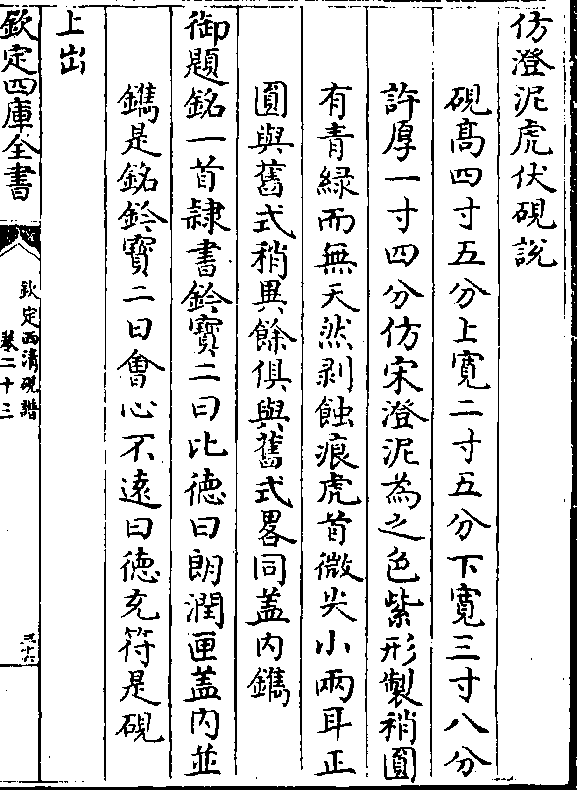 仿澄泥虎伏硯說
硯髙四寸五分上寛二寸五分下寛三寸八分
許厚一寸四分仿宋澄泥為之色紫形製稍圓
有青緑而無天然剥蝕痕虎首微尖小兩耳正
圓與舊式稍異餘俱與舊式畧同盖内鐫
御題銘一首隸書鈐寳二曰比德曰朗潤匣盖内並
鐫是銘鈐寳二曰㑹心不逺曰徳充符是硯
上出
欽定四庫全書
欽定西清硯譜
卷二十三
三十六